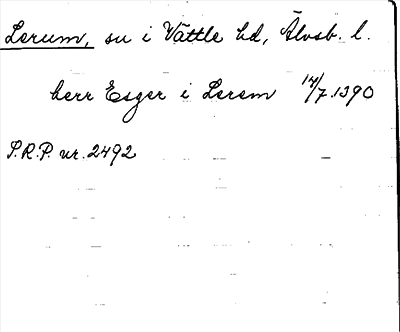 Lerum, sn i Vättle hd, Älvsb. l.
herr Esger i Lerem 14/7.1390
S.R.P. nr. 2492